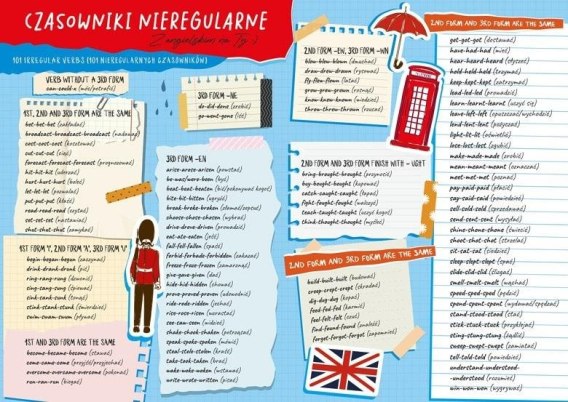 CZASOWNIKI NIEREGULARNE
Z angielskim na Ty :)
101 IRREGULAR VERBS (101 NIEREGULARNYCH CZASOWNIKÓW)
VERB WITHOUT A 3RD FORM
can-could-x (móc/potrafić)
1ST, 2ND AND 3RD FORM ARE THE SAME
bet-bet-bet (zakładać)
broadcast-broadcast-broadcast (nadawać)
cost-cost-cost (kosztować)
cut-cut-cut (ciąć)
forecast-forecast-forecast (prognozować)
hit-hit-hit (uderzać)
hurt-hurt-hurt (boleć)
let-let-let (pozwalać)
put-put-put (kłaść)
read-read-read (czytać)
set-set-set (nastawiać)
shut-shut-shut (zamykać)
1ST FORM 'I', 2ND FORM 'A', 3RD FORM 'U'
begin-began-begun (zaczynać)
drink-drank-drunk (pić)
ring-rang-rung (dzwonić)
sing-sang-sung (śpiewać)
sink-sank-sunk (tonąć)
stink-stank-stunk (śmierdzieć)
swim-swam-swum (pływać)
1ST AND 3RD FORM ARE THE SAME
become-became-become (stawać)
come-came-come (przyjść/przyjechać)
overcome-overcame-overcome (pokonać)
run-ran-run (biegać)
3RD FORM -NE
do-did-done (zrobić)
go-went-gone (iść)
3RD FORM -EN
arise-arose-arisen (powstać)
be-was/were-been (być)
beat-beat-beaten (bić/pokonywać kogoś)
bite-bit-bitten (gryźć)
break-broke-broken (złamać/zepsuć)
choose-chose-chosen (wybrać)
drive-drove-driven (prowadzić)
eat-ate-eaten (jeść)
fall-fell-fallen (spaść)
forbid-forbade-forbidden (zakazać)
freeze-froze-frozen (zamarzać)
give-gave-given (dać)
hide-hid-hidden (chować)
prove-proved-proven (udowodnić)
ride-rode-ridden (jechać)
rise-rose-risen (wzrastać)
see-saw-seen (widzieć)
shake-shook-shaken (potrząsać)
speak-spoke-spoken (mówić)
steal-stole-stolen (kraść)
take-took-taken (brać)
wake-woke-woken (wstawać)
write-wrote-written (pisać)
2ND FORM -EW, 3RD FORM -WN
blow-blew-blown (dmuchać)
draw-drew-drawn (rysować)
fly-flew-flown (latać)
grow-grew-grown (rosnąć)
know-knew-known (wiedzieć)
throw-threw-thrown (rzucać)
2ND FORM AND 3RD FORM FINISH WITH - UGHT
bring-brought-brought (przynosić)
buy-bought-bought (kupować)
catch-caught-caught (łapać)
fight-fought-fought (walczyć)
teach-taught-taught (uczyć kogoś)
think-thought-thought (myśleć)
2ND FORM AND 3RD FORM ARE THE SAME
build-built-built (budować)
creep-crept-crept (skradać)
dig-dug-dug (kopać)
feed-fed-fed (karmić)
feel-felt-felt (czuć)
find-found-found (znaleźć)
forget-forgot-forgot (zapomnieć)
2ND FORM AND 3RD FORM ARE THE SAME
get-got-got (dostawać)
have-had-had (mieć)
hear-heard-heard (słyszeć)
hold-held-held (trzymać)
keep-kept-kept (zatrzymać)
lead-led-led (prowadzić)
learn-learnt-learnt (uczyć się)
leave-left-left (opuszczać/wychodzić)
lend-lent-lent (pożyczać)
light-lit-lit (oświetlić)
lose-lost-lost (zgubić)
make-made-made (zrobić)
mean-meant-meant (oznaczać)
meet-met-met (poznać)
pay-paid-paid (płacić)
say-said-said (powiedzieć)
sell-sold-sold (sprzedawać)
send-sent-sent (wysyłać)
shine-shone-shone (świecić)
shoot-shot-shot (strzelać)
sit-sat-sat (siedzieć)
sleep-slept-slept (spać)
slide-slid-slid (ślizgać)
smell-smelt-smelt (wąchać)
speed-sped-sped (pędzić)
spend-spent-spent (wydawać/spędzać)
stand-stood-stood (stać)
stick-stuck-stuck (przyklejać)
sting-stung-stung (żądlić)
sweep-swept-swept (zamiatać)
tell-told-told (powiedzieć)
understand-understood-
-understood (rozumieć)
win-won-won (wygrać)